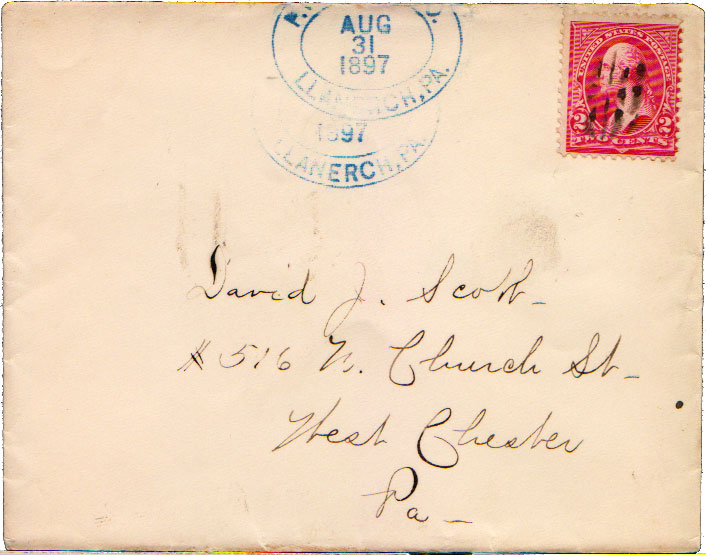 AUG
31
1897
LLANERCH, PA.
1897
LLANERCH, PA.
UNITED STATES POSTAGE
2 2
TWO CENTS
David J. Scott
# 516 N. Church St
West Chester
Pa